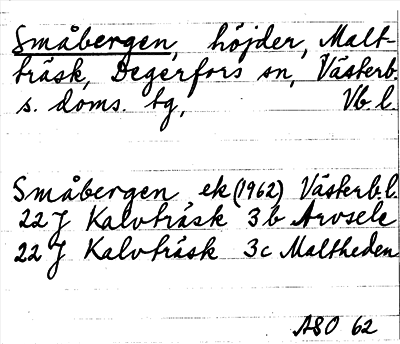 Småbergen, höjder, Malt-
träsk, Degerfors sn, Västerb.
s. doms. tg, Vb l.
Småbergen ek (1962) Västerb. l.
22 J Kalvträsk 3 b Arvsele
22 J Kalvträsk 3 c Maltheden
ASO 62